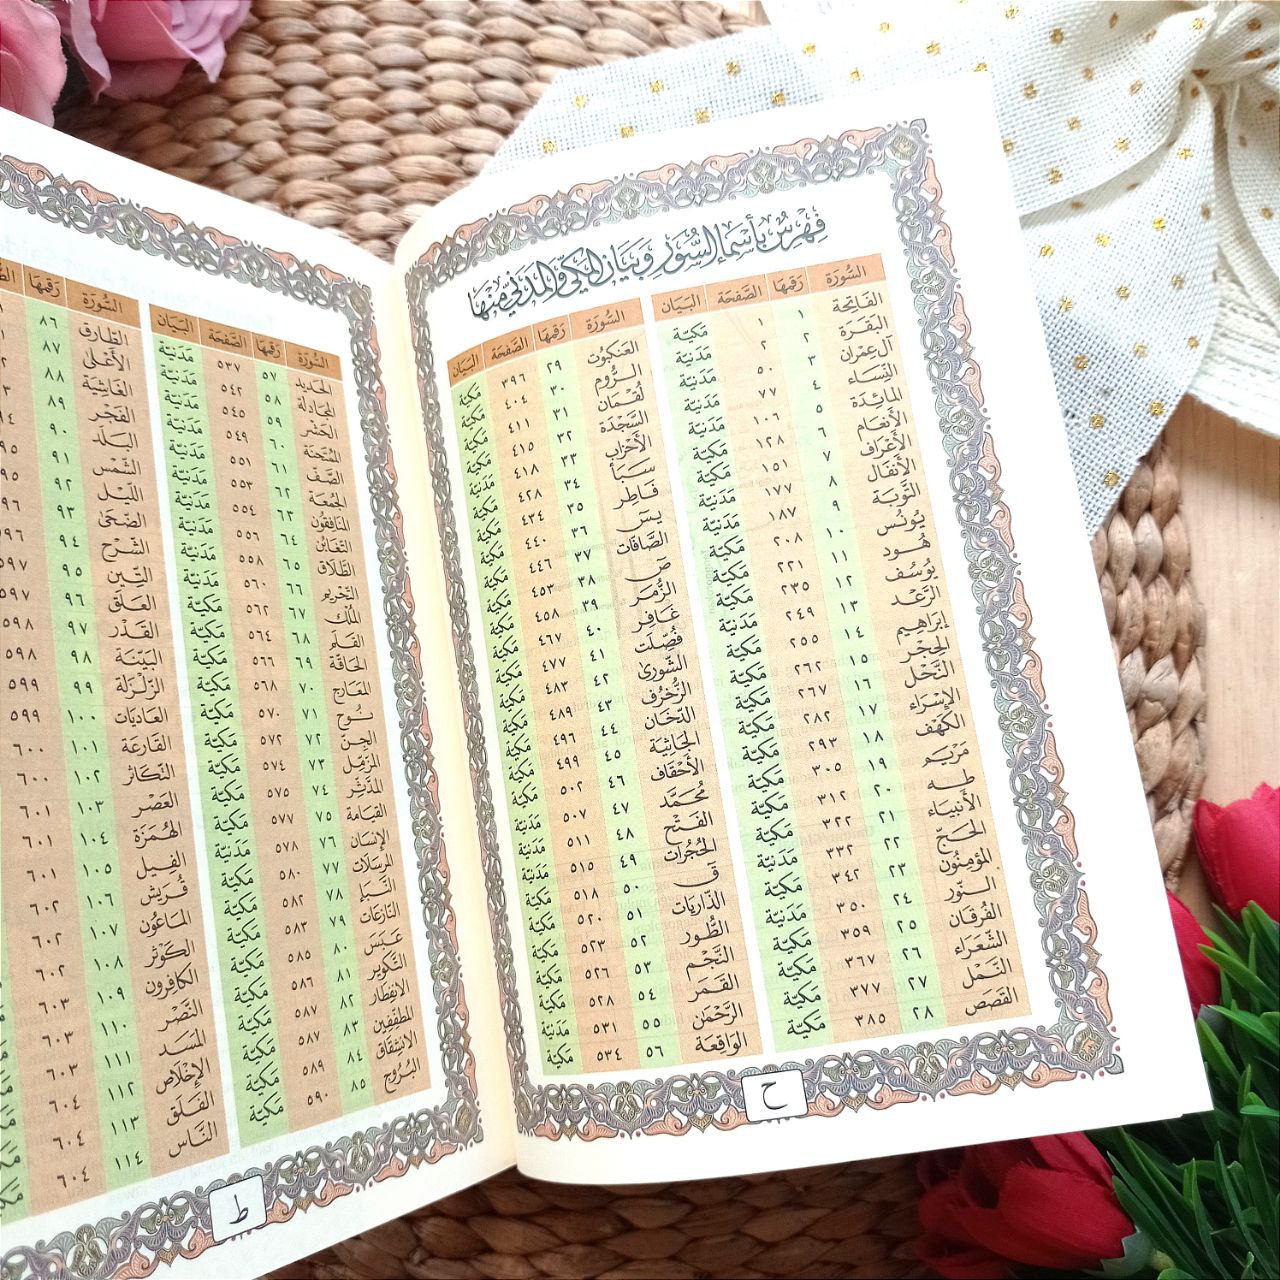 فِهْرِسٌ بِأَسْمَاءِ السُّوَرِ وَبَيَانِ المَكِّيِّ وَالمَدَنِيِّ مِنْهَا
السُّورَة رَقمهَا الصَّفحَة البَيَان
الفَاتِحَة ١ ١ مَكيّة
البَقَرَة ٢ ٢ مَدَنيّة
آل عِمْرَان ٣ ٥٠ مَدَنيّة
النِّسَاء ٤ ٧٧ مَدَنيّة
المَائِدَة ٥ ١٠٦ مَدَنيّة
الأَنْعَام ٦ ١٢٨ مَكيّة
الأَعْرَاف ٧ ١٥١ مَكيّة
الأَنفَال ٨ ١٧٧ مَدَنيّة
التَّوْبَة ٩ ١٨٧ مَدَنيّة
يُونُس ١٠ ٢٠٨ مَكيّة
هُود ١١ ٢٢١ مَكيّة
يُوسُف ١٢ ٢٣٥ مَكيّة
الرَّعْد ١٣ ٢٤٩ مَدَنيّة
إِبْرَاهِيم ١٤ ٢٥٥ مَكيّة
الحِجْر ١٥ ٢٦٢ مَكيّة
النَّحْل ١٦ ٢٦٧ مَكيّة
الإِسْرَاء ١٧ ٢٨٢ مَكيّة
الكَهْف ١٨ ٢٩٣ مَكيّة
مَرْيَم ١٩ ٣٠٥ مَكيّة
طه ٢٠ ٣١٢ مَكيّة
الأَنْبيَاء ٢١ ٣٢٢ مَكيّة
الحَج ٢٢ ٣٣٢ مَدَنيّة
المؤمنُون ٢٣ ٣٤٢ مَكيّة
النُّور ٢٤ ٣٥٠ مَدَنيّة
الفُرقَان ٢٥ ٣٥٩ مَكيّة
الشُّعَرَاء ٢٦ ٣٦٧ مَكيّة
النَّمْل ٢٧ ٣٧٧ مَكيّة
القَصَص ٢٨ ٣٨٥ مَكيّة
السُّورَة رَقمهَا الصَّفحَة البَيَان
العَنكبُوت ٢٩ ٣٩٦ مَكيّة
الرُّوم ٣٠ ٤٠٤ مَكيّة
لُقْمَان ٣١ ٤١١ مَكيّة
السَّجْدَة ٣٢ ٤١٥ مَكيّة
الأَحْزَاب ٣٣ ٤١٨ مَدَنيّة
سَبَأ ٣٤ ٤٢٨ مَكيّة
فَاطِر ٣٥ ٤٣٤ مَكيّة
يسٓ ٣٦ ٤٤٠ مَكيّة
الصَّافَّات ٣٧ ٤٤٦ مَكيّة
صٓ ٣٨ ٤٥٣ مَكيّة
الزُّمَر ٣٩ ٤٥٨ مَكيّة
غَافِر ٤٠ ٤٦٧ مَكيّة
فُصِّلَت ٤١ ٤٧٧ مَكيّة
الشُّورَى ٤٢ ٤٨٣ مَكيّة
الزُّخْرُف ٤٣ ٤٨٩ مَكيّة
الدُّخَان ٤٤ ٤٩٦ مَكيّة
الجَاثِيَة ٤٥ ٤٩٩ مَكيّة
الأَحْقَاف ٤٦ ٥٠٢ مَكيّة
مُحَمَّد ٤٧ ٥٠٧ مَدَنيّة
الفَتْح ٤٨ ٥١١ مَدَنيّة
الحُجُرَات ٤٩ ٥١٥ مَدَنيّة
قٓ ٥٠ ٥١٨ مَكيّة
الذَّاريَات ٥١ ٥٢٠ مَكيّة
الطُّور ٥٢ ٥٢٣ مَكيّة
النَّجْم ٥٣ ٥٢٦ مَكيّة
القَمَر ٥٤ ٥٢٨ مَكيّة
الرَّحْمٰن ٥٥ ٥٣١ مَدَنيّة
الوَاقِعَة ٥٦ ٥٣٤ مَكيّة
ح
السُّورَة رَقمهَا الصَّفحَة البَيَان
الحَديد ٥٧ ٥٣٧ مَدَنيّة
المجَادلة ٥٨ ٥٤٢ مَدَنيّة
الحَشْر ٥٩ ٥٤٥ مَدَنيّة
المُمتَحنَة ٦٠ ٥٤٩ مَدَنيّة
الصَّف ٦١ ٥٥١ مَدَنيّة
الجُمعَة ٦٢ ٥٥٣ مَدَنيّة
المنَافِقُون ٦٣ ٥٥٤ مَدَنيّة
التغَابُن ٦٤ ٥٥٦ مَدَنيّة
الطَّلَاق ٦٥ ٥٥٨ مَدَنيّة
التَّحْريم ٦٦ ٥٦٠ مَدَنيّة
المُلْك ٦٧ ٥٦٢ مَكيّة
القَلَم ٦٨ ٥٦٤ مَكيّة
الحَاقَّة ٦٩ ٥٦٦ مَكيّة
المعَارج ٧٠ ٥٦٨ مَكيّة
نُوح ٧١ ٥٧٠ مَكيّة
الجِن ٧٢ ٥٧٢ مَكيّة
المزمّل ٧٣ ٥٧٤ مَكيّة
المدَّثِّر ٧٤ ٥٧٥ مَكيّة
القِيَامَة ٧٥ ٥٧٧ مَكيّة
الإِنْسَان ٧٦ ٥٧٨ مَدَنيّة
المرسَلات ٧٧ ٥٨٠ مَكيّة
النَّبَأ ٧٨ ٥٨٢ مَكيّة
النَّازعَات ٧٩ ٥٨٣ مَكيّة
عَبَسَ ٨٠ ٥٨٥ مَكيّة
التَّكوير ٨١ ٥٨٦ مَكيّة
الانفِطار ٨٢ ٥٨٧ مَكيّة
المطفّفِين ٨٣ ٥٨٧ مَكيّة
الانشِقَاق ٨٤ ٥٨٩ مَكيّة
البُرُوج ٨٥ ٥٩٠ مَكيّة
السُّورَة رَقمهَا
الطَّارق ٨٦
الأَعْلَى ٨٧
الغَاشِيَة ٨٨
الفَجْر ٨٩
البَلَد ٩٠
الشَّمْس ٩١
الليْل ٩٢
الضُّحَى ٩٣
الشَّرْح ٩٤
التِّين ٩٥ ٥٩٧
العَلَق ٩٦ ٥٩٧
القَدْر ٩٧ ٥٩٨
البَيّنَة ٩٨ ٥٩٨
الزَّلْزَلة ٩٩ ٥٩٩
العَاديَات ١٠٠ ٥٩٩
القَارعَة ١٠١ ٦٠٠
التَّكَاثر ١٠٢ ٦٠٠
العَصْر ١٠٣ ٦٠١
الهُمَزَة ١٠٤ ٦٠١
الفِيل ١٠٥ ٦٠١
قُرَيْش ١٠٦ ٦٠٢
المَاعُون ١٠٧ ٦٠٢
الكَوْثَر ١٠٨ ٦٠٢
الكَافِرون ١٠٩ ٦٠٣
النَّصْر ١١٠ ٦٠٣
المَسَد ١١١ ٦٠٣
الإِخْلَاص ١١٢ ٦٠٤
الفَلَق ١١٣ ٦٠٤
النَّاس ١١٤ ٦٠٤
ط